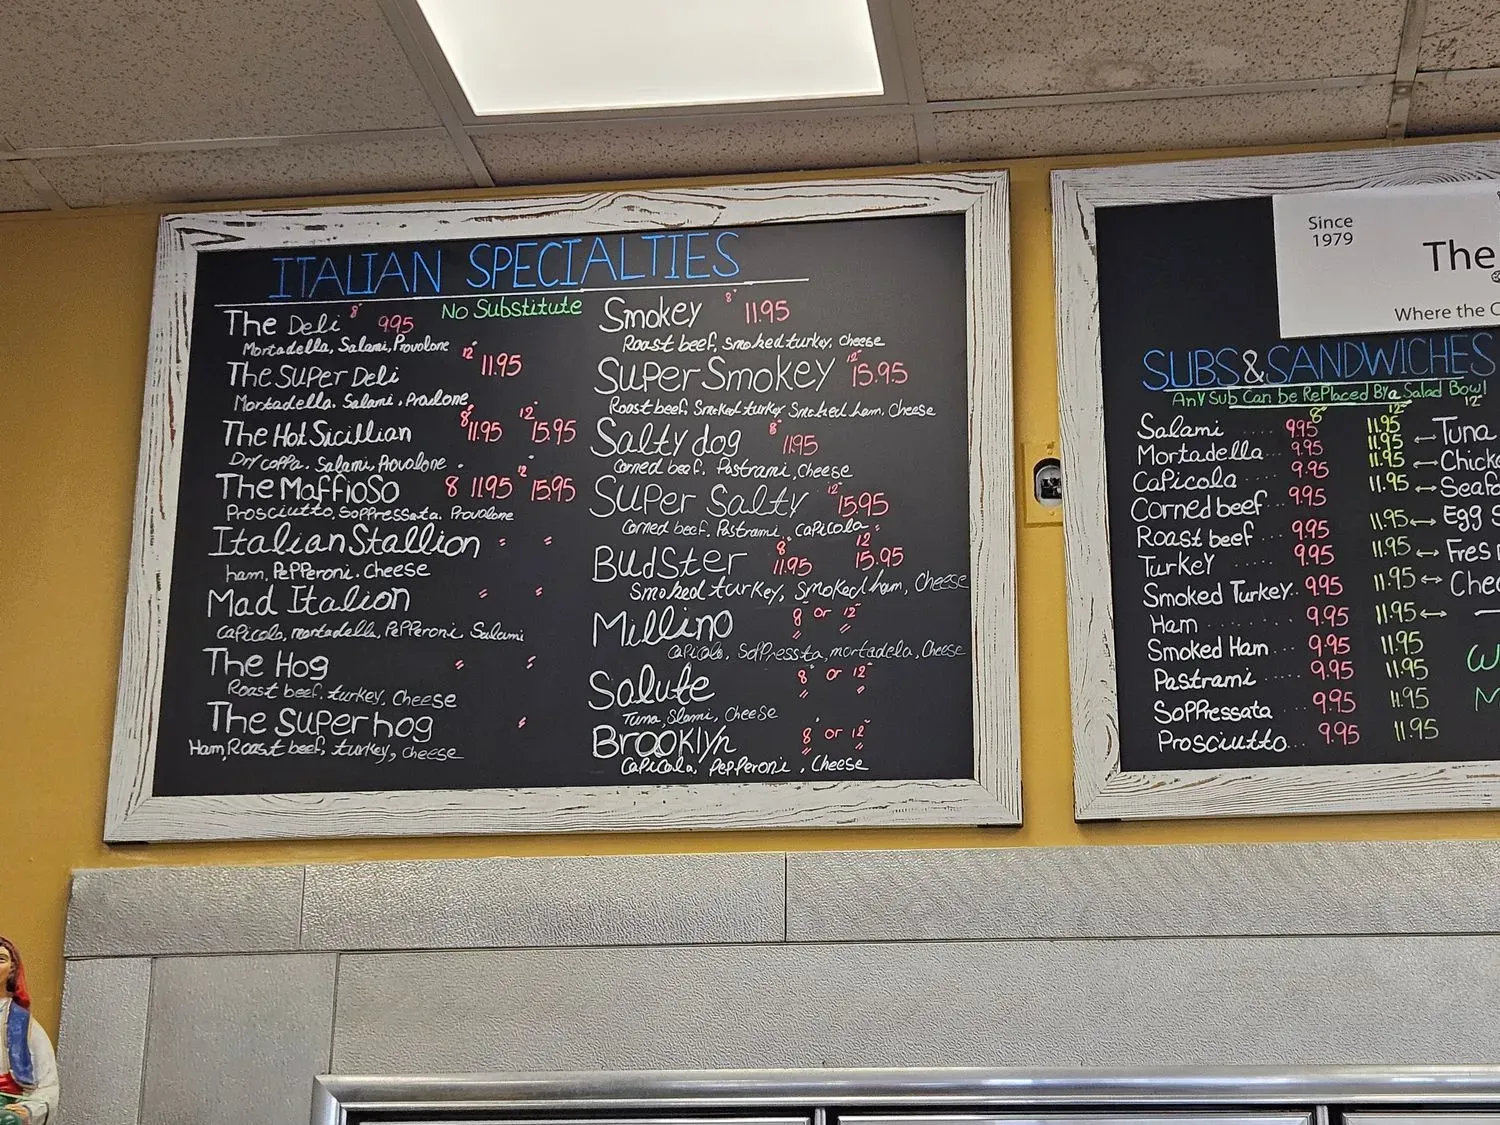 ITALIAN SPECIALTIES
No Substitute
The Deli 8" 9.95
Mortadella, Salami, Provolone
The SUPER Deli 12" 11.95
Mortadella. Salami, Provlone
The Hot Sicillian 8" 11.95 12" 15.95
Dry coppa. Salami, Provolone
The Maffioso 8 11.95 12" 15.95
Prosciutto, Soppressata, Provolone
Italian Stallion " "
ham, Pepperoni, Cheese
Mad Italion " "
Capicola, mortadella, Pepperoni Salami
The Hog " "
Roast beef, turkey, Cheese
The Super hog "
Ham, Roast beef, turkey, Cheese
Smokey 8" 11.95
Roast beef, Smoked turkey, Cheese
Super Smokey 12" 15.95
Roast beef, Smoked turkey Smoked ham, Cheese
Salty dog 8" 11.95
Corned beef, Pastrami, Cheese
Super Salty 12" 15.95
Corned beef, Pastrami, Capicola
Budster 8" 11.95 12" 15.95
Smoked turkey, Smoked ham, Cheese
Millino 8" or 12"
" "
Capicolo, Soppressta, mortadela, Cheese
Salute 8" or 12"
" "
Tuna, Slami, Cheese
Brooklyn 8" or 12"
" "
Capicala, Pepperoni, Cheese
Since
1979
The
Where the
SUBS & SANDWICHES
Any Sub Can be Replaced By a Salad Bowl
8" 12" 12"
Salami .... 9.95 11.95 Tuna
Mortadella... 9.95 11.95
Capicola 9.95 11.95
Corned beef... 9.95 11.95 Egg
Roast beef ... 9.95 11.95
Turkey ..... 9.95 11.95
Smoked Turkey.. 9.95 11.95
Ham ........ 9.95 11.95
Smoked Ham... 9.95 11.95
Pastrami ..... 9.95 11.95
Soppressata 9.95 11.95
Prosciutto... 9.95 11.95